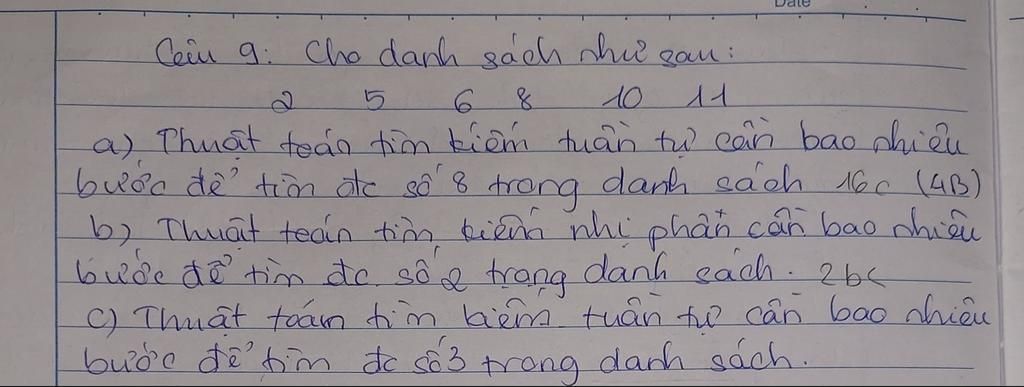 Date
Câu 9: Cho danh sách như sau:
2 5 6 8 10 11
a) Thuật toán tìm kiếm tuần tự cần bao nhiêu
bước để tìm đc số 8 trong danh sách (4B)
b) Thuật toán tìm kiếm nhị phân cần bao nhiêu
bước để tìm đc số 2 trong danh sách. 2bc
c) Thuật toán tìm kiếm tuần tự cần bao nhiêu
bước để tìm đc số 3 trong danh sách.